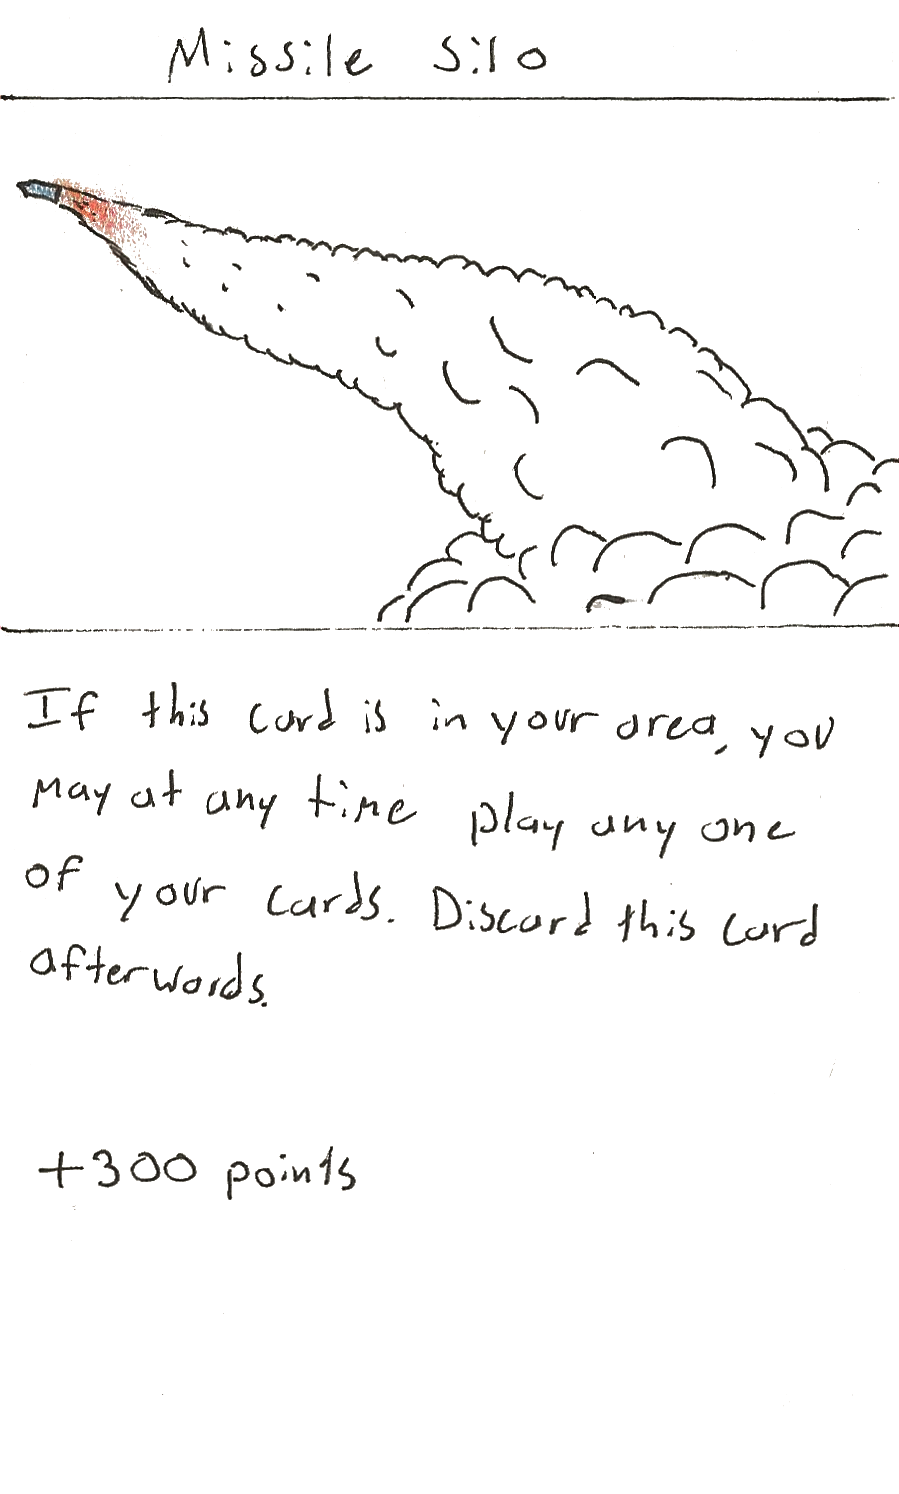 Missile Silo
If this card is in your area, you
may at any time play any one
of your cards. Discard this card
afterwords.
+300 points